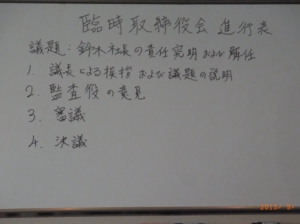 臨時取締役会 進行表
議題：鈴木社長の責任究明および解任
1. 議長による挨拶および議題の説明
2. 監査役の意見
3. 審議
4. 決議